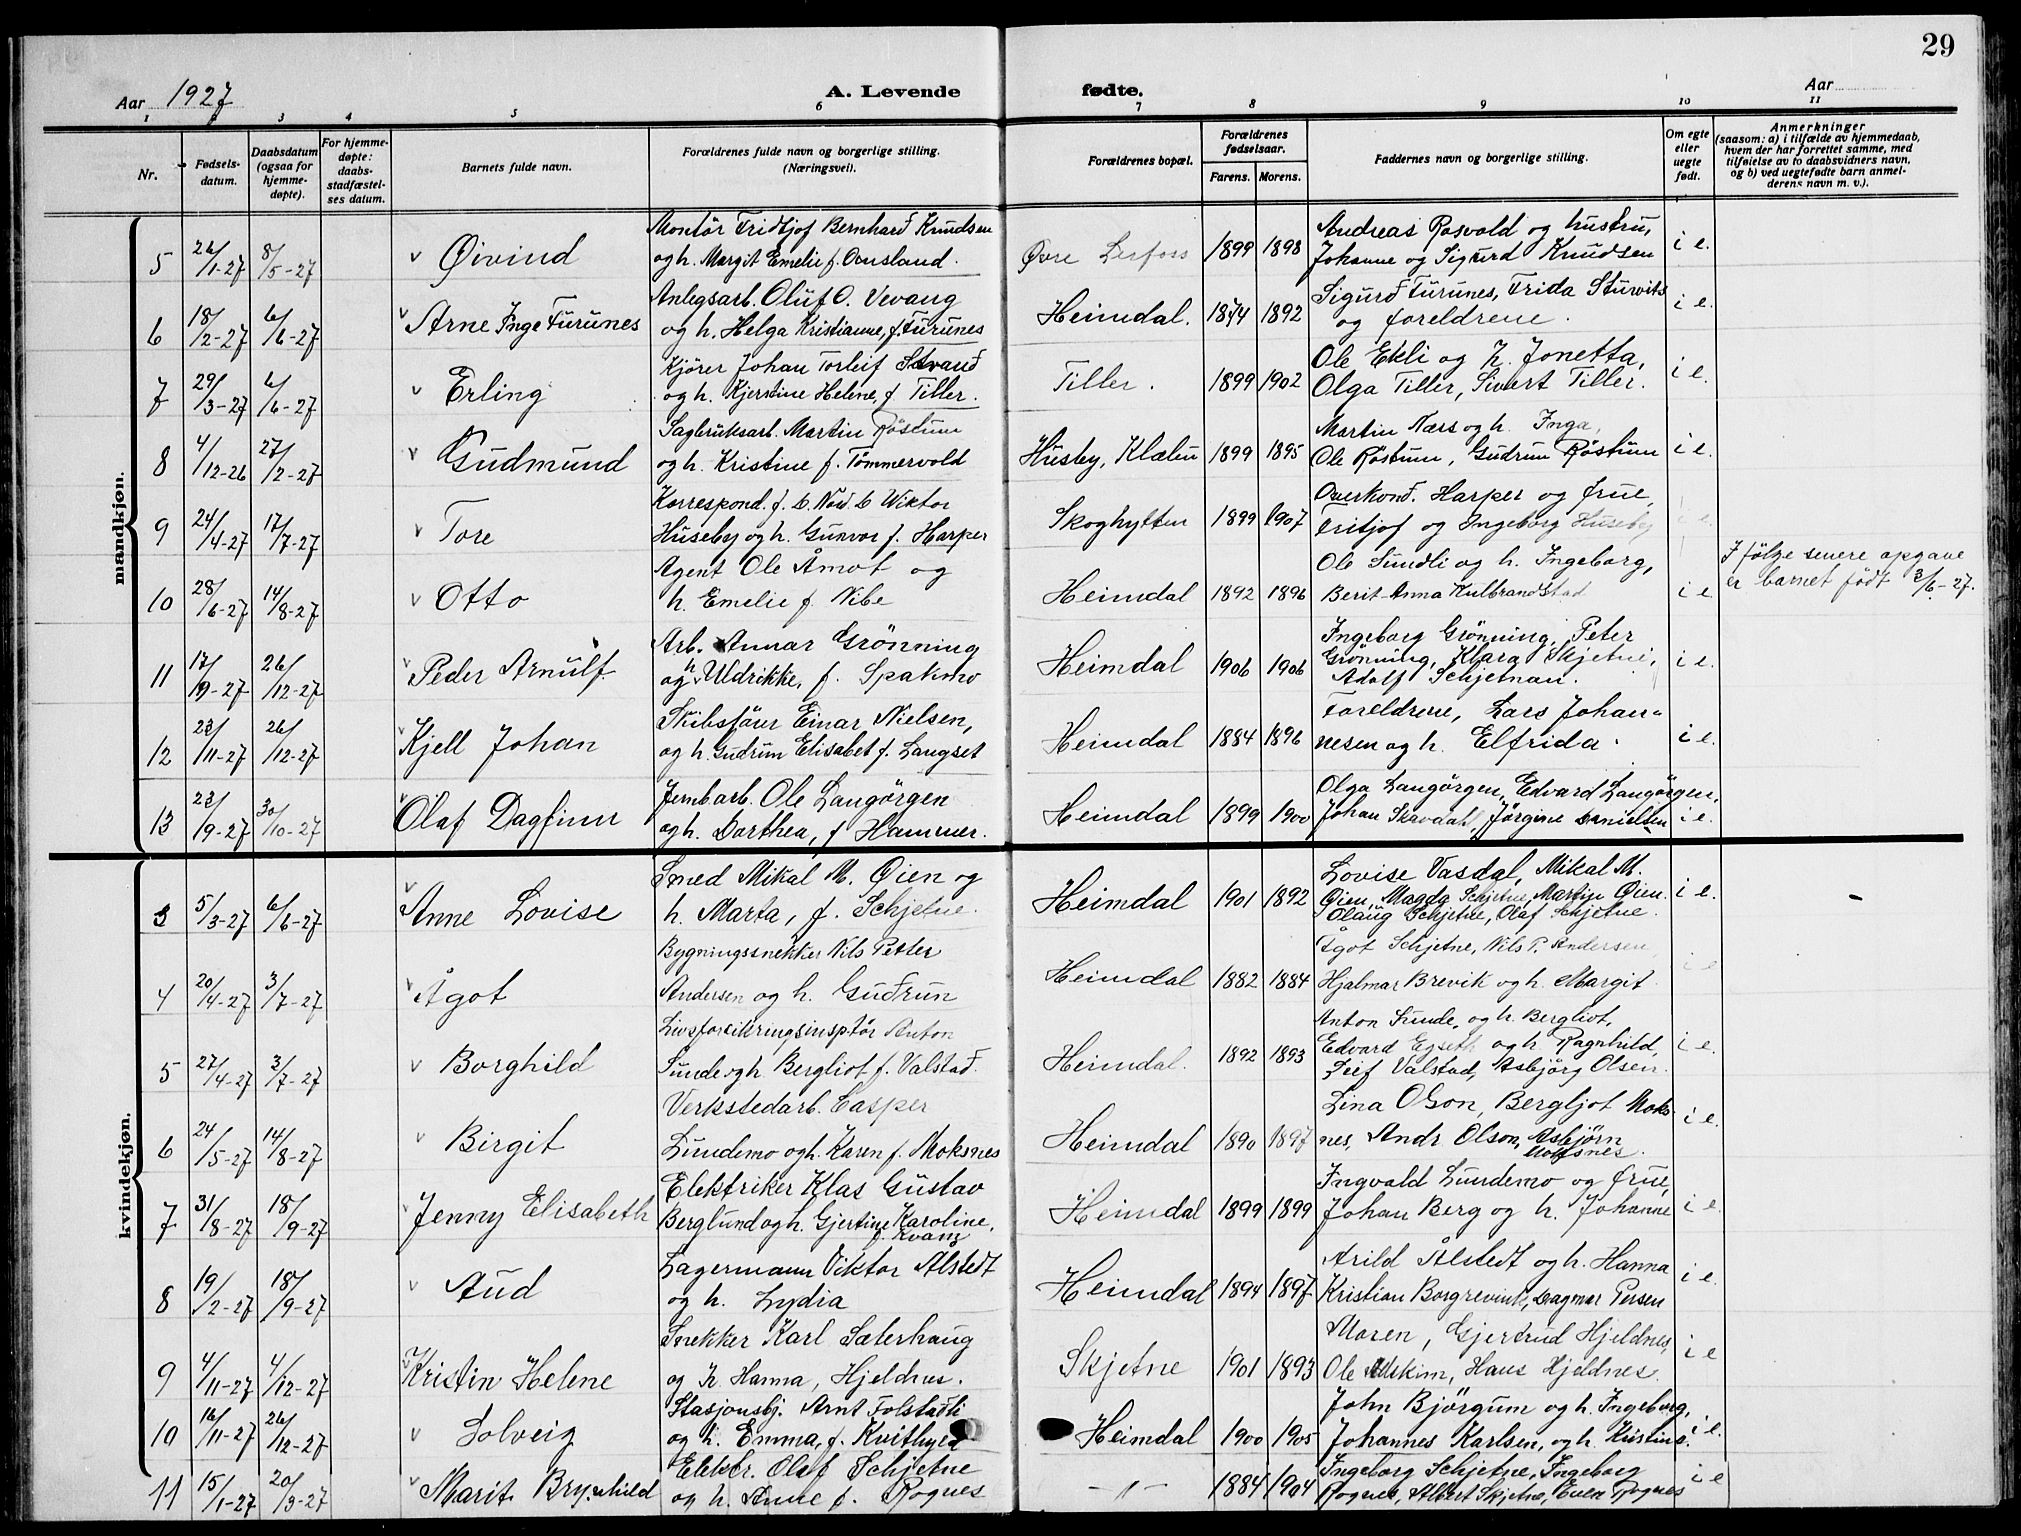 29
Aar 1927 A. Levende fødte. Aar
1 2 3 4 5 6 7 8 9 10 11
Nr.
Fødsels-
datum.
Daabsdatum
(ogsaa for
hjemme-
døpte).
For hjemme-
døpte:
daabs-
stadfæstel-
ses datum.
Barnets fulde navn.
Forældrenes fulde navn og borgerlige stilling.
(Næringsvei).
Forældrenes bopæl.
Forældrenes
fødselsaar.
Farens. Morens.
Faddernes navn og borgerlige stilling.
Om egte
eller
uegte
født.
Anmerkninger
(saasom: a) i tilfælde av hjemmedaab,
hvem der har forrettet samme, med
tilføielse av to daabsvidners navn,
og b) ved uegtefødte barn anmel-
derens navn m. v.).
mandkjøn.
5 26/1-27 8/5-27 v Øivind
Montör Fridtjof Bernhard Knudsen
og h. Margit Emelie f. Ounsland.
Øvre Lerfoss 1899 1898
Andreas Rosvold og hustru,
Johanne og Sigurd Knudsen
i e.
6 18/2-27 6/6-27 v Arne Inge Furunes
Anlegsarb. Oluf O. Vevang
og h. Helga Kristianne, f. Furunes
Heimdal. 1874 1892
Sigurd Furunes, Frida Stuwitz
og foreldrene.
i e.
7 29/3-27 6/6-27 v Erling
Kjörer Johan Torleif Strand
og h. Kjerstine Helene, f. Tiller.
Tiller. 1899 1902
Ole Ekli og h. Jonetta,
Olga Tiller, Sivert Tiller.
i e.
8 4/12-26 27/2-27 v Gudmund
Sagbruksarb. Martin Röstum
og h. Kristine f. Tömmervold
Husby, Klæbu 1899 1895
Martin Næss og h. Inga,
Ole Röstum, Gudrun Röstum
i e.
9 24/4-27 17/7-27 v Tore
Korrespond. f. Wiktor
Huseby og h. Gunvor f. Harper
Skoghytten 1899 1907
Overkond. Harper og frue,
Fritjof og Ingeborg Huseby
i e.
10 28/6-27 14/8-27 v Otto
Agent Ole Åmot og
h. Emelie f. Nibe
Heimdal 1892 1896
Ole Sundli og h. Ingeborg,
Berit-Anna Kulbrandstad
i e.
Ifölge senere opgave
er barnet födt 3/6-27.
11 17/9-27 26/12-27 v Peder Arnulf
Arb. Annar Grönning
og h. Uldrikke, f. Spakmo
Heimdal 1906 1906
Ingeborg Grönning, Peter
Grönning, Klara Skjetne,
Adolf Schjetnan.
i e.
12 22/11-27 26/12-27 v Kjell Johan
Skibsförer Einar Nielsen,
og h. Gudrun Elisabet f. Langset
Heimdal 1884 1896
Foreldrene, Lars Johan-
nesen og h. Elfrida.
i e.
13 22/9-27 30/10-27 v Olaf Dagfinn
Jernbarb. Ole Langörgen
og h. Dorthea, f. Hammer.
Heimdal 1899 1900
Olga Langörgen, Edvard Langörgen,
Johan Skavdahl, Jörgine Danielsen
i e.
kvindekjøn.
3 5/3-27 6/6-27 v Anne Lovise
Smed Mikal M. Øien og
h. Marta, f. Schjetne.
Heimdal 1901 1892
Lovise Vasdal, Mikal M.
Øien, Magda Schjetne, Martin Øien
Olaug Schjetne, Olaf Schjetne.
i e.
4 20/4-27 3/7-27 v Ågot
Bygningssnekker Nils Petter
Andersen og h. Gudrun
Heimdal 1882 1884
Ågot Schjetne, Nils P. Andersen,
Hjalmar Brevik og h. Margit.
i e
5 27/4-27 3/7-27 v Borghild
Livsforsikringsinsptör Anton
Sunde og h. Bergliot f. Valstad.
Heimdal. 1892 1893
Anton Sunde, og h. Bergliot,
Edvard Egseth og h. Ragnhild,
Leif Valstad, Asbjörg Olsen.
i e.
6 24/5-27 14/8-27 v Birgit
Verkstedarb. Casper
Lundemo og h. Karen f. Moksnes
Heimdal 1890 1897
Lina Olson, Bergljot Moks-
nes, Andr. Olson, Asbjörn
Moksnes.
i e.
7 31/8-27 18/9-27 Jenny Elisabeth
Elektriker Klas Gustav
Berglund og h. Gjertine Karoline,
f. Kvam
Heimdal 1899 1899
Ingvald Lundemo og frue,
Johan Berg og h. Johanne
i e.
8 19/2-27 18/9-27 v Aud
Lagermann Viktor Ålstedt
og h. Lydia
Heimdal 1894 1897
Arild Ålstedt og h. Hanna
Kristian Borgrevink, Dagmar Persen
i e.
9 4/11-27 4/12-27 v Kristin Helene
Snekker Karl Sæterhaug
og h. Hanna, Hjeldnes.
Skjetne 1901 1893
Maren, Gjertrud Hjeldnes,
Ole Melskim, Hans Hjeldnes.
i e
10 16/11-27 26/12-27 v Solveig
Stasjonsbj. Arnt Folstadli
og h. Emma, f. Kvithyld
Heimdal 1900 1905
John Björgum og h. Ingeborg,
Johannes Karlsen, og h. Kristine.
i e.
11 15/1-27 20/3-27 v Marit Brynhild
Elektr. Olaf Schjetne
og h. Anne f. Rognes
-"- 1884 1904
Ingeborg Schjetne, Ingeborg
Rognes, Albert Skjetne, Even Rognes
i e